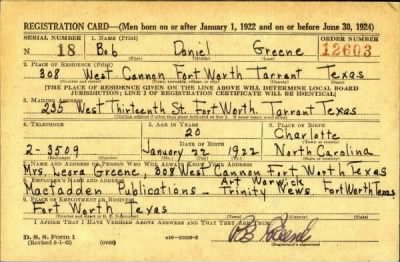 REGISTRATION CARD—(Men born on or after January 1, 1922 and on or before June 30, 1924)
SERIAL NUMBER 1. NAME (Print) ORDER NUMBER
N 18 Bob Daniel Greene 12603
(First) (Middle) (Last)
2. PLACE OF RESIDENCE (Print)
308 West Cannon Fort Worth Tarrant Texas
(Number and street) (Town, township, village, or city) (County) (State)
[THE PLACE OF RESIDENCE GIVEN ON THE LINE ABOVE WILL DETERMINE LOCAL BOARD
JURISDICTION; LINE 2 OF REGISTRATION CERTIFICATE WILL BE IDENTICAL]
3. MAILING ADDRESS
West Thirteenth St. Fort Worth. Tarrant Texas
4. TELEPHONE 5. AGE IN YEARS 6. PLACE OF BIRTH
20 Charlotte
DATE OF BIRTH
2-3509 January 22 1922 North Carolina
7. NAME AND ADDRESS OF PERSON WHO WILL ALWAYS KNOW YOUR ADDRESS
Mrs. Leora Greene, 308 West Cannon Fort Worth Texas
8. EMPLOYER'S NAME AND ADDRESS Art Warwick
Macfadden Publications — Trinity News. Fort Worth Texas
9. PLACE OF EMPLOYMENT OR BUSINESS
Fort Worth Texas
I AFFIRM THAT I HAVE VERIFIED ABOVE ANSWERS AND THAT THEY ARE TRUE.
D. S. S. Form 1
(Revised 6-1-42) (over)
(Registrant's signature)